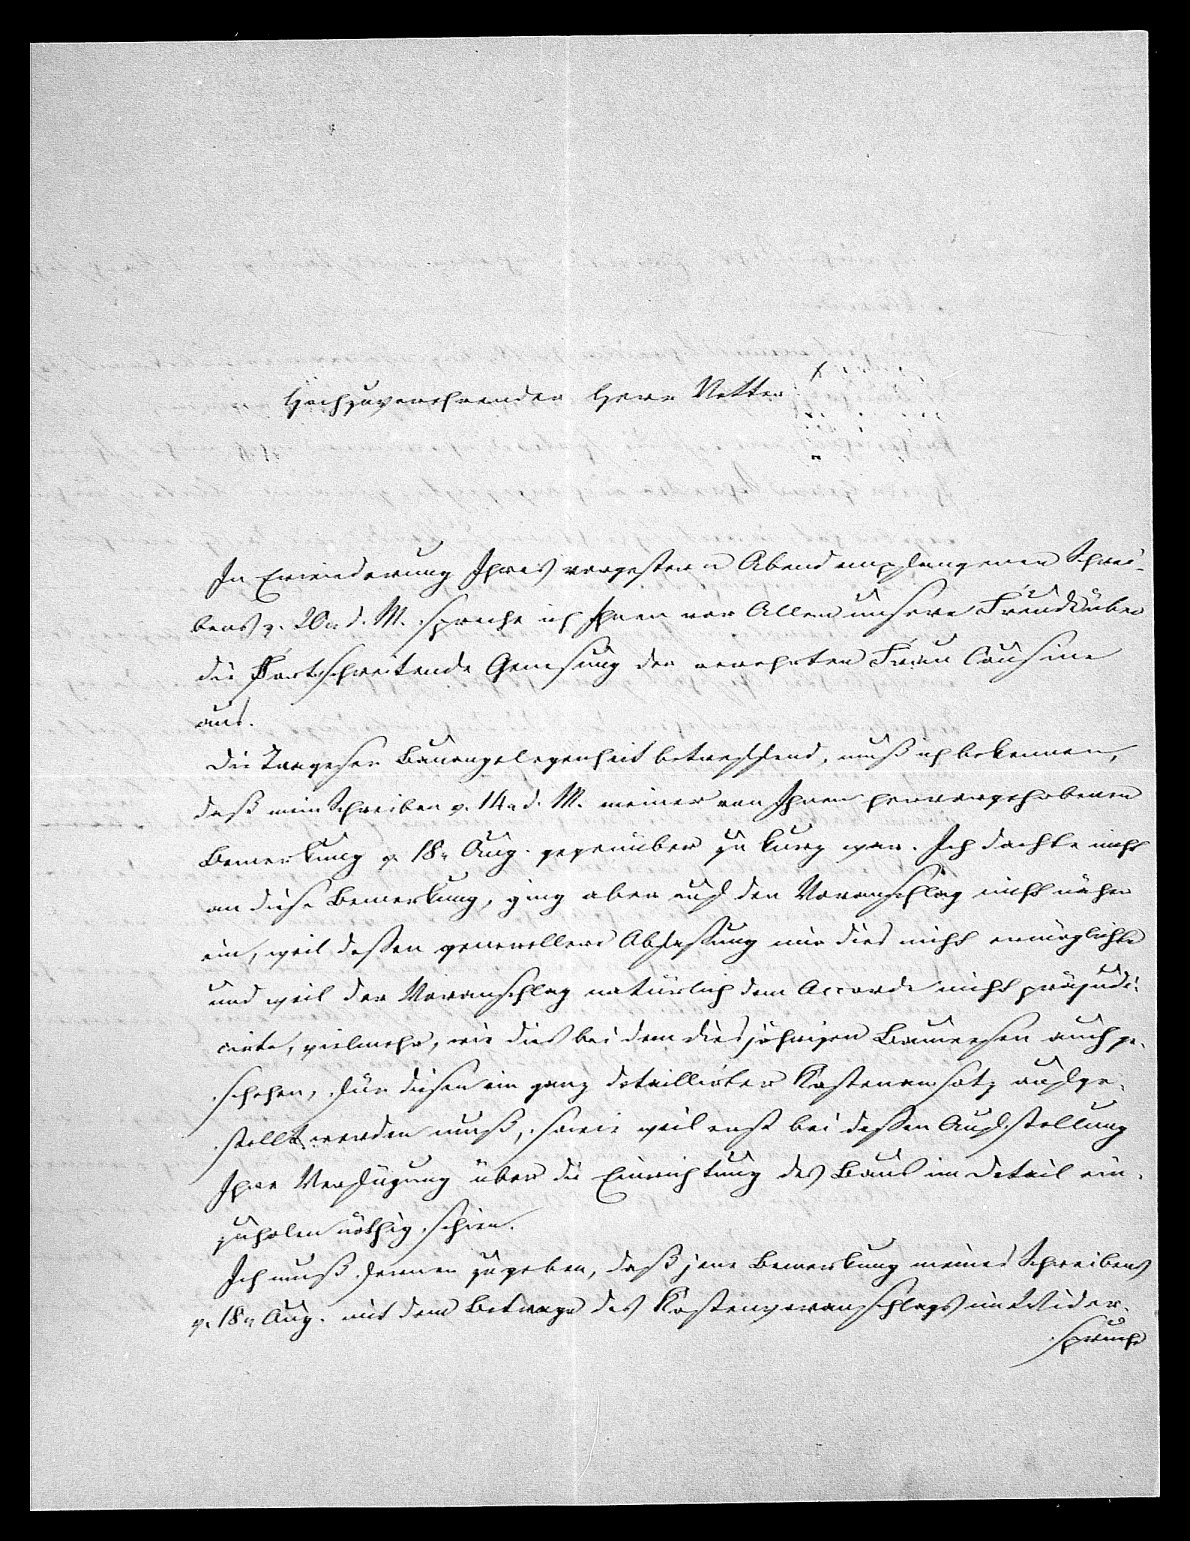 Hochzuverehrender Herr Vetter!
In Erwiederung Ihres vorgestern Abend empfangenen Schrei-
bens v. 20n d. M. spreche ich Ihnen vor Allem unsere Freude über
die fortschreitende Genesung der verehrten Frau Cousine
aus.
Die Bauangelegenheit betreffend, muß ich bekennen,
daß mein Schreiben v. 14n d. M. meiner von Ihnen hervorgehobenen
Bemerkung v. 18n Aug. gegenüber zu kurz war. Ich dachte nicht
an diese Bemerkung, ging aber auf den Voranschlag nicht näher
ein, weil dessen generellere Abfassung mir dies nicht ermöglichte
und weil der Voranschlag natürlich dem Accorde nicht präjudi-
cirte, vielmehr, wie dies bei dem diesjährigen Bauwesen auch ge-
schehen, für diesen ein ganz detaillirter Kostenansatz aufge-
stellt werden muß, sowie weil erst bei dessen Aufstellung
Ihre Verfügung über die Einrichtung des Baus im Detail ein-
zuholen nöthig schien.
Ich muß ferner zugeben, daß jene Bemerkung meines Schreibens
v. 18n Aug. mit dem Betrage des Kostenvoranschlags im Wider-
spruche